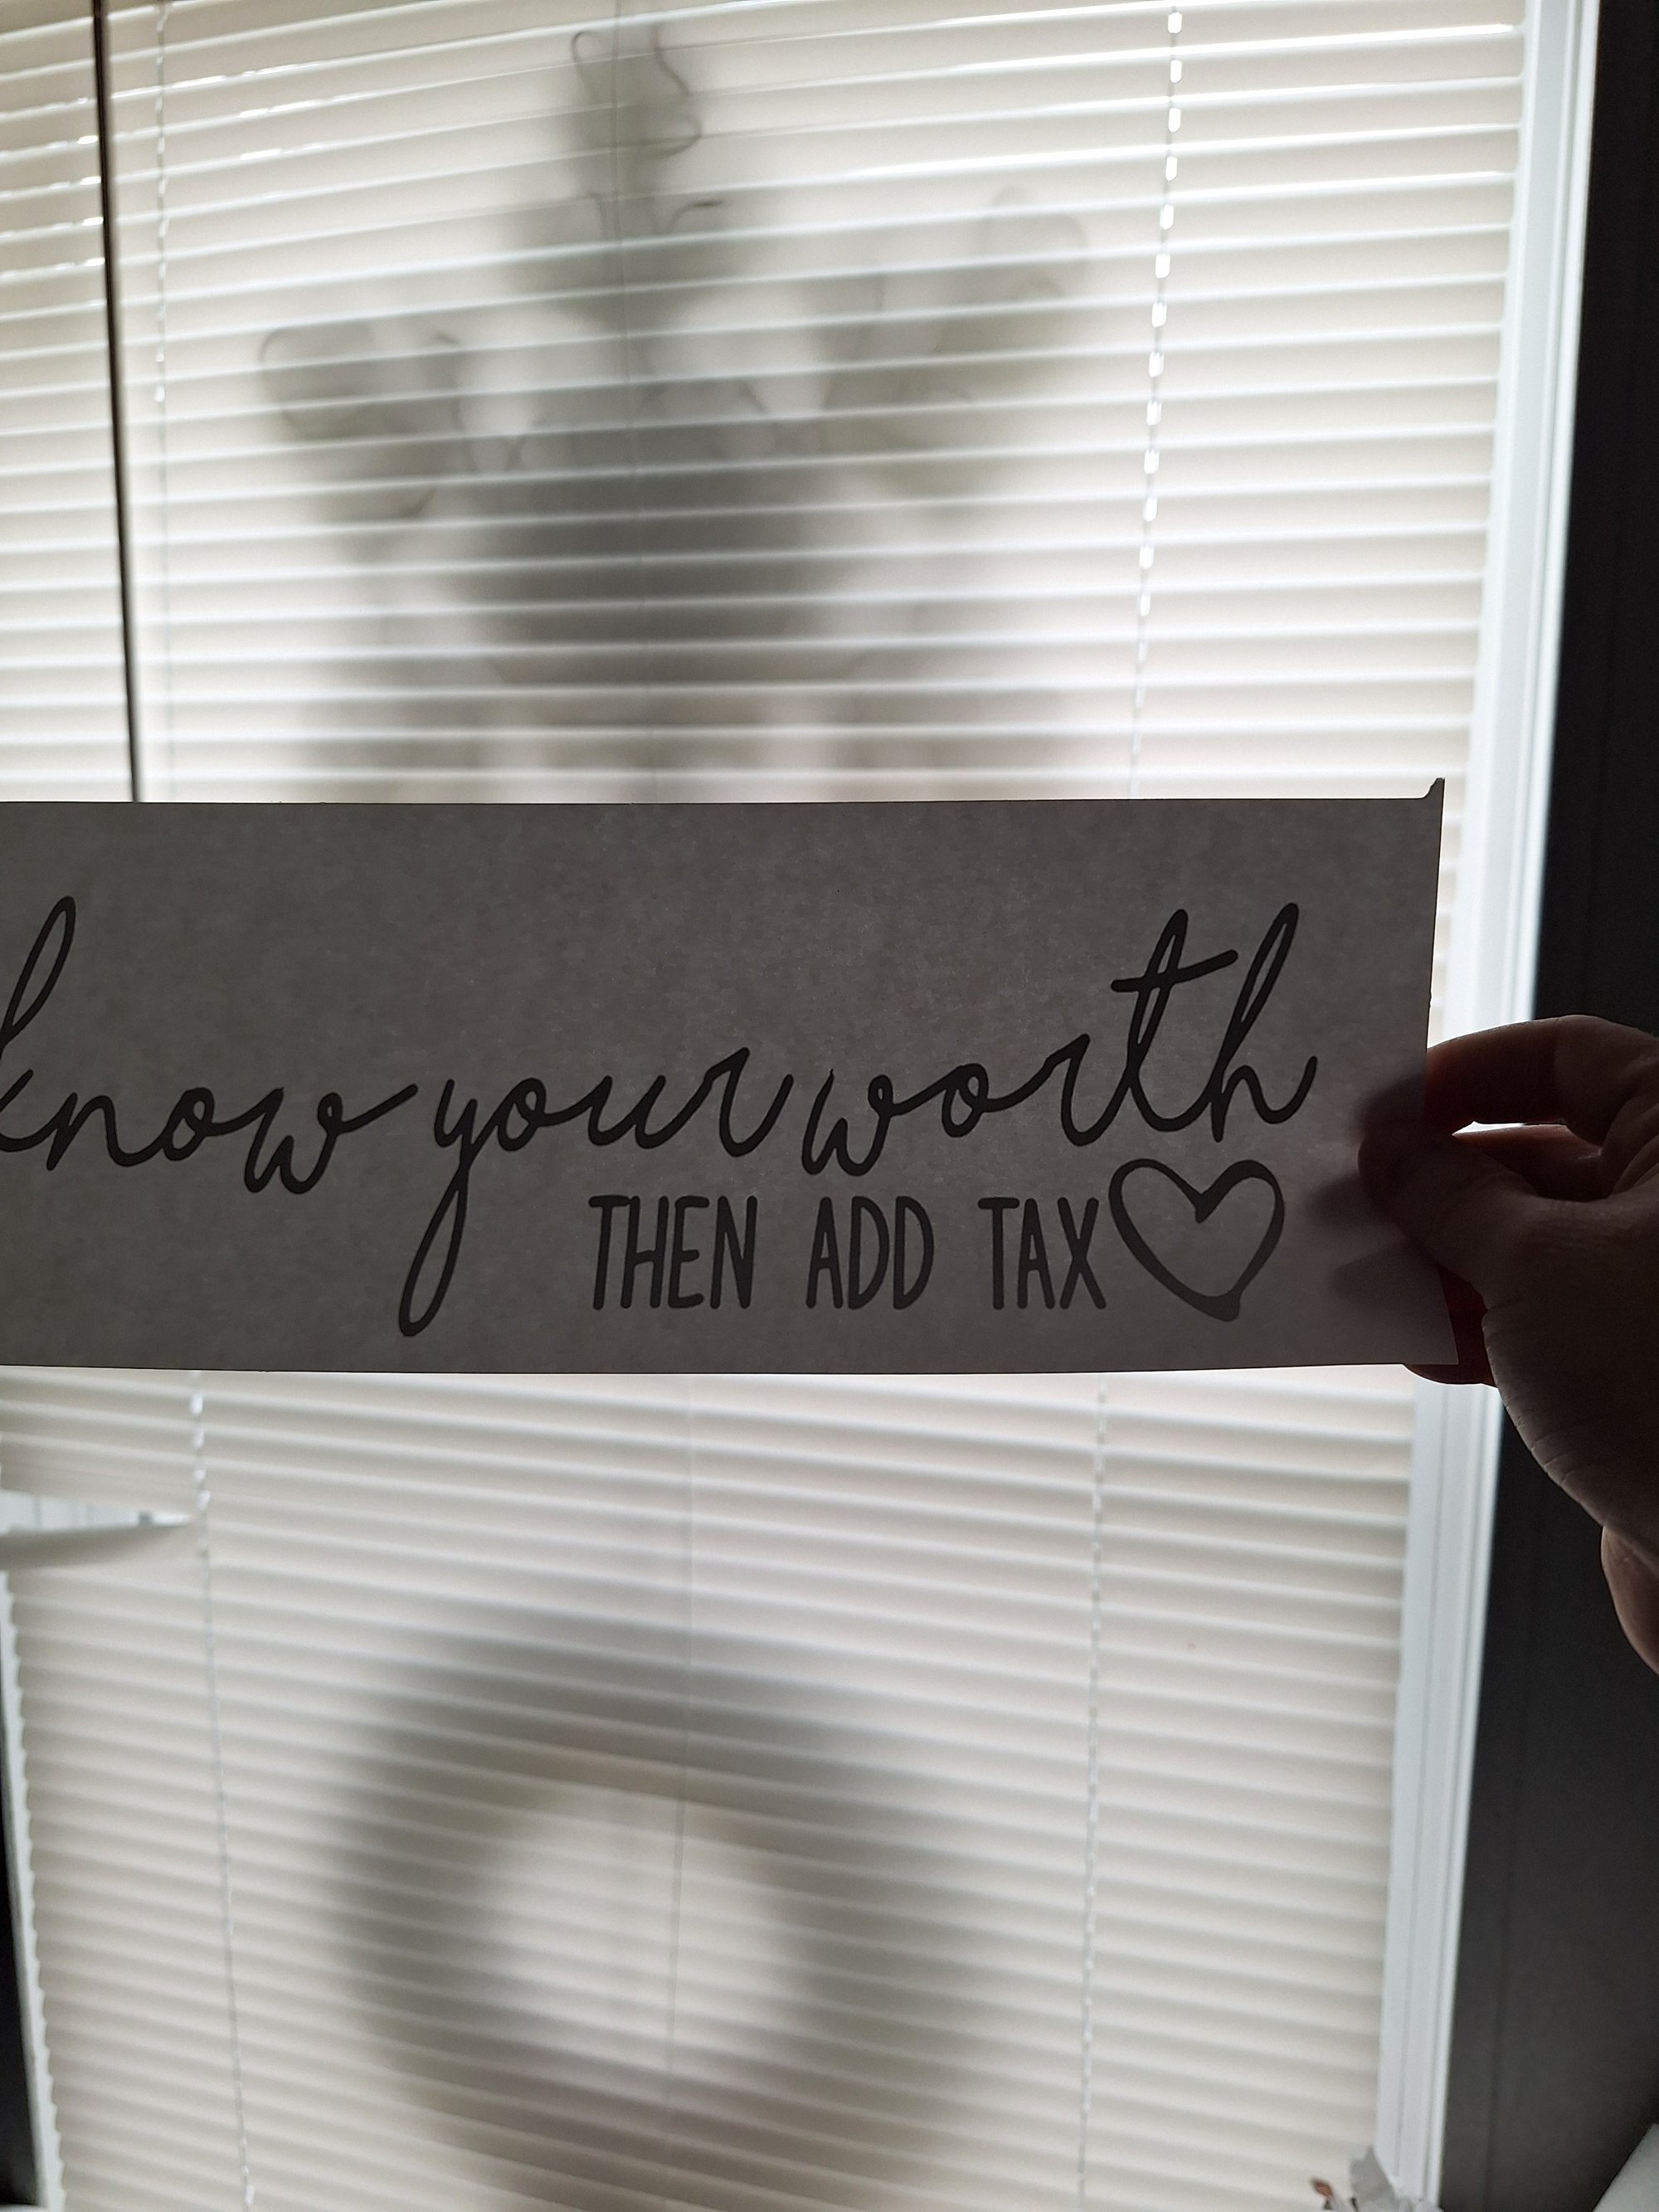 know your worth
THEN ADD TAX